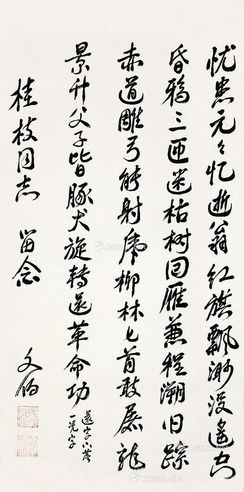 忧患元元忆逝翁红旗飘渺没遥空
昏鸦三匝迷枯树回雁兼程溯旧踪
赤道雕弓能射虎椰林匕首敢屠龙
景升父子皆豚犬旋转还革命功
桂枝同志 留念
文伯